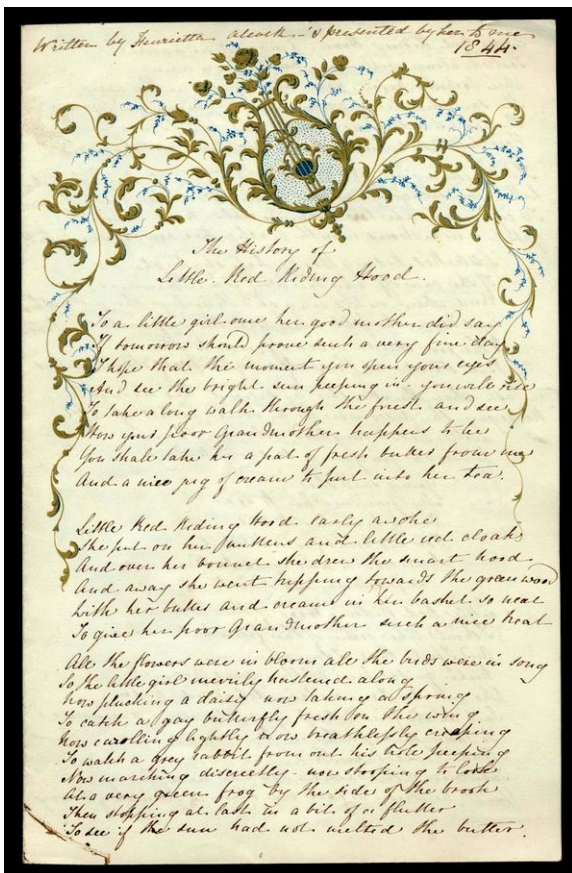 Written by Henrietta Alcock - & presented by her to me
1844.
The History of
Little Red Riding Hood.
To a little girl once her good mother did say
If tomorrow should prove such a very fine day
I hope that the moment you open your eyes
And see the bright sun peeping in - you will rise
To take a long walk through the forest and see
How your poor Grandmother happens to be
You shall take her a pat of fresh butter from me
And a nice jug of cream to put into her tea.
Little Red Riding Hood early awoke
She put on her pattens and little red cloak
And over her bonnet she drew the smart hood
And away she went tripping towards the green wood
With her butter and cream in her basket so neat
To give her poor Grandmother such a nice treat
All the flowers were in bloom all the birds were in song
So the little girl merrily hastened along
Now plucking a daisy now taking a spring
To catch a gay butterfly fresh on the wing
Now carolling lightly now breathlessly creeping
To watch a grey rabbit from out his hole peeping
Now marching discreetly - now stooping to look
At a very green frog by the side of the brook
Then stopping at last in a bit of a flutter
To see if the sun had not melted the butter.